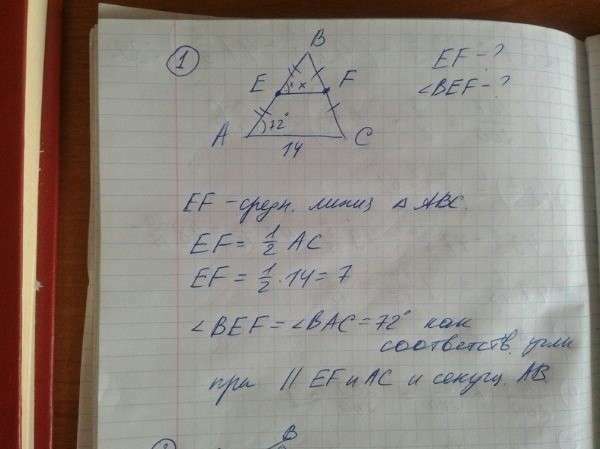 1
B
EF - ?
E x F
∠BEF - ?
A 72° C
14
EF - средн. линия △ ABC.
EF = 1/2 AC
EF = 1/2 · 14 = 7
∠BEF = ∠BAC = 72° как
соответств. углы
при || EF и AC и секущ. AB.
B